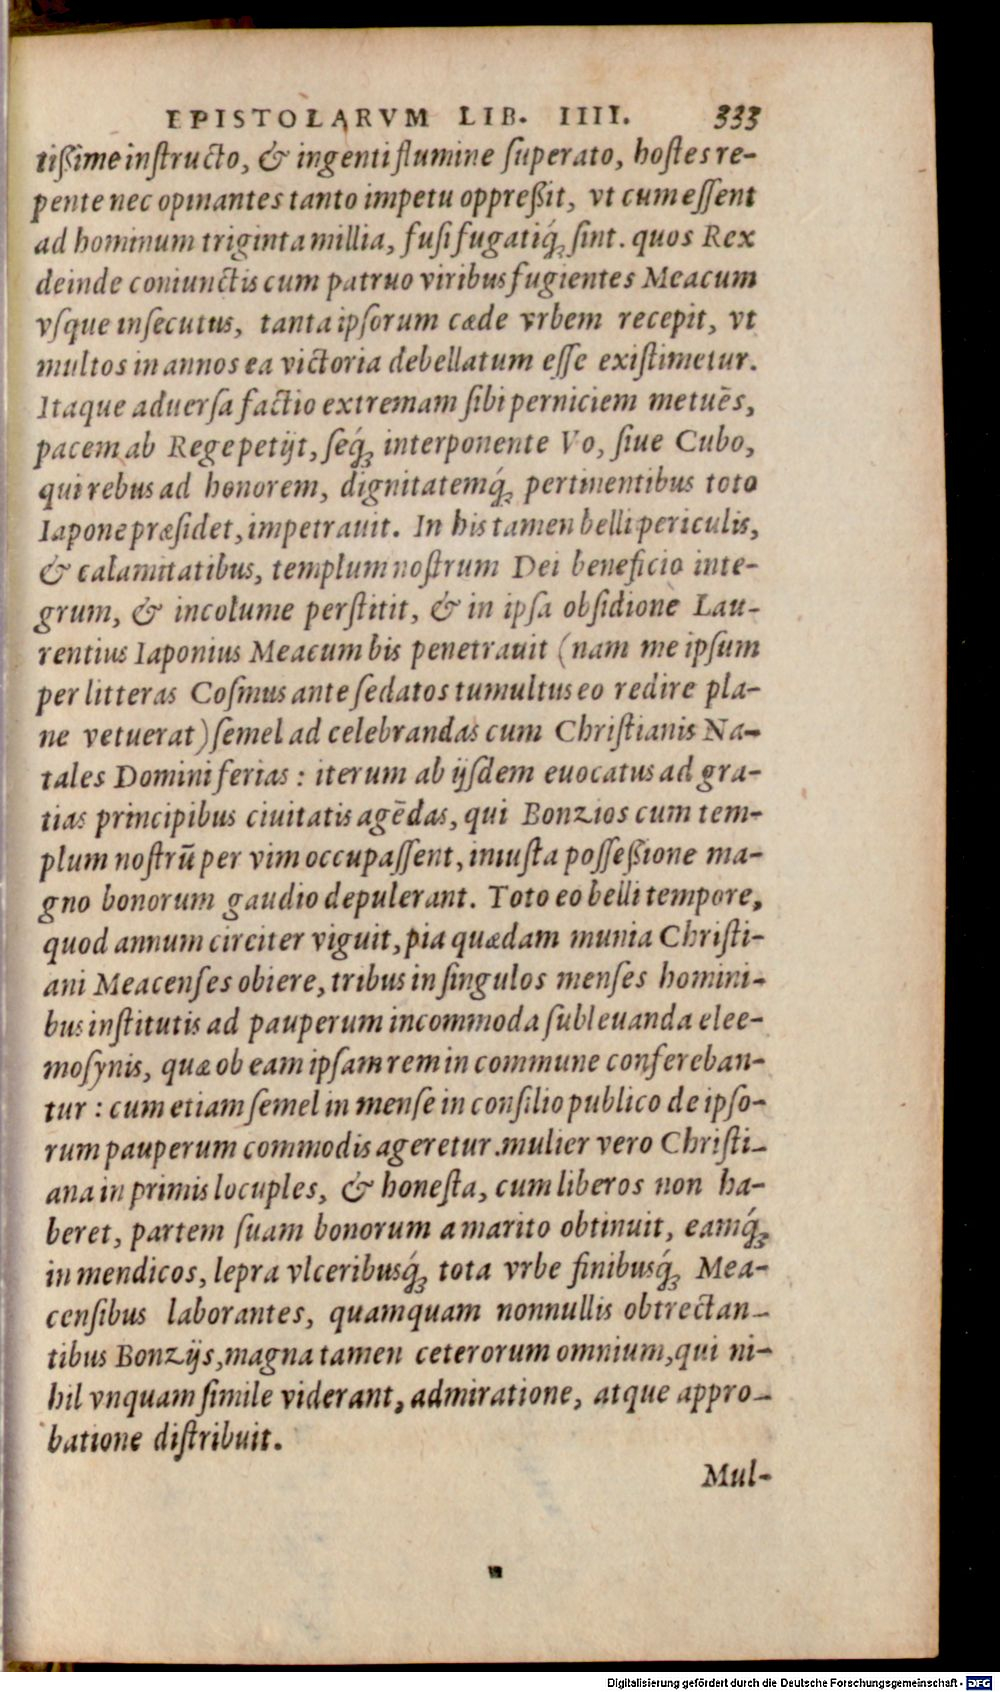 EPISTOLARVM LIB. IIII. 333
tißime instructo, & ingenti flumine superato, hostes re-
pente nec opinantes tanto impetu oppreßit, vt cum essent
ad hominum triginta millia, fusi fugatiq́; sint. quos Rex
deinde coniunctis cum patruo viribus fugientes Meacum
vsque insecutus, tanta ipsorum cæde vrbem recepit, vt
multos in annos ea victoria debellatum esse existimetur.
Itaque aduersa factio extremam sibi perniciem metuēs,
pacem ab Rege petijt, seq́; interponente Vo, siue Cubo,
qui rebus ad honorem, dignitatemq́; pertinentibus toto
Iapone præsidet, impetrauit. In his tamen belli periculis,
& calamitatibus, templum nostrum Dei beneficio inte-
grum, & incolume perstitit, & in ipsa obsidione Lau-
rentius Iaponius Meacum bis penetrauit (nam me ipsum
per litteras Cosmus ante sedatos tumultus eo redire pla-
ne vetuerat) semel ad celebrandas cum Christianis Na-
tales Domini ferias : iterum ab ijsdem euocatus ad gra-
tias principibus ciuitatis agēdas, qui Bonzios cum tem-
plum nostrū per vim occupassent, iniusta posseßione ma-
gno bonorum gaudio depulerant. Toto eo belli tempore,
quod annum circiter viguit, pia quædam munia Christi-
ani Meacenses obiere, tribus in singulos menses homini-
bus institutis ad pauperum incommoda subleuanda elee-
mosynis, quæ ob eam ipsam rem in commune confereban-
tur : cum etiam semel in mense in consilio publico de ipso-
rum pauperum commodis ageretur. mulier vero Christi-
ana in primis locuples, & honesta, cum liberos non ha-
beret, partem suam bonorum a marito obtinuit, eamq́;
in mendicos, lepra vlceribusq́; tota vrbe finibusq́; Mea-
censibus laborantes, quamquam nonnullis obtrectan-
tibus Bonzijs, magna tamen ceterorum omnium, qui ni-
hil vnquam simile viderant, admiratione, atque appro-
batione distribuit.
Mul-
Digitalisierung gefördert durch die Deutsche Forschungsgemeinschaft - DFG